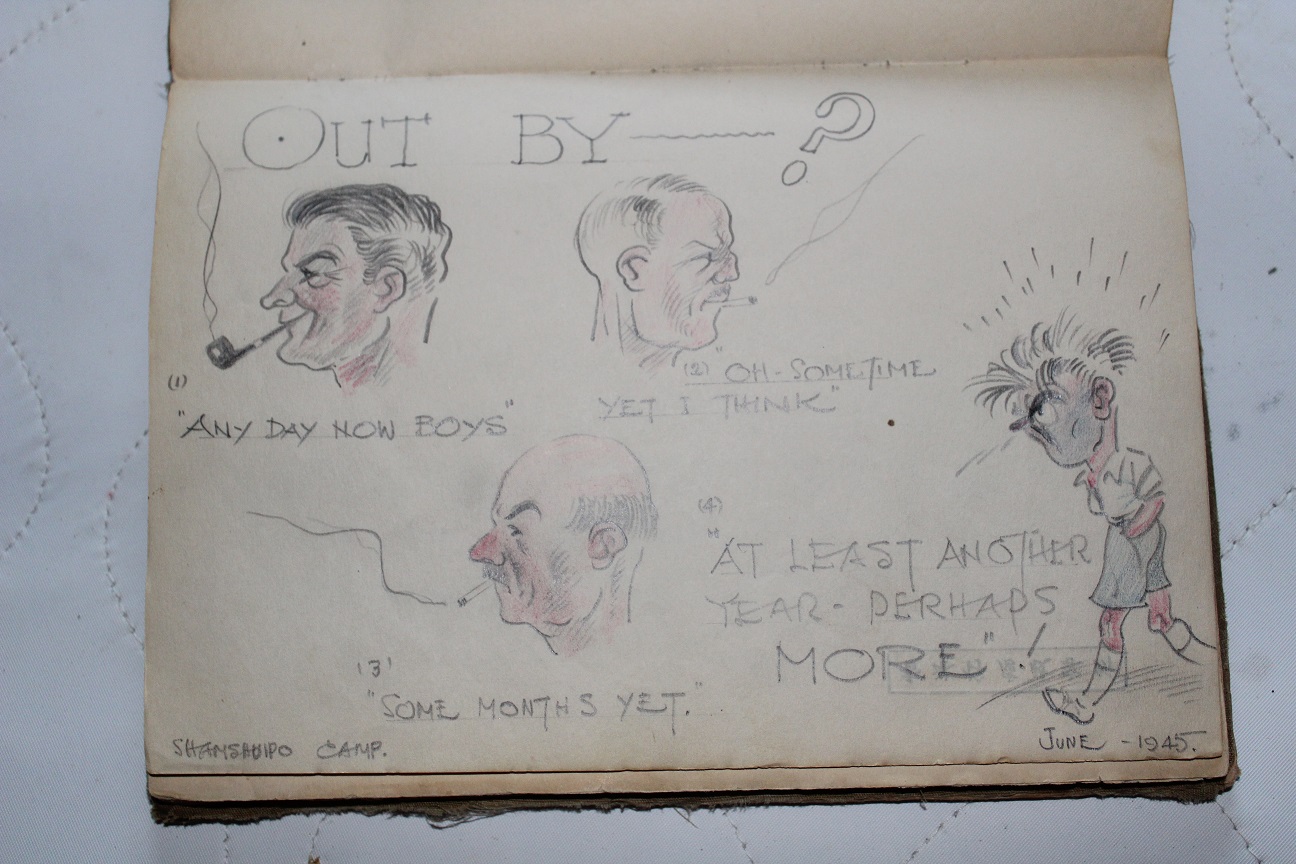 OUT BY —— ?
(1)
"ANY DAY NOW BOYS"
(2) "OH - SOMETIME
YET I THINK"
'3'
"SOME MONTHS YET."
(4)
"AT LEAST ANOTHER
YEAR - PERHAPS
MORE"!
SHAMSHUIPO CAMP.
JUNE - 1945.